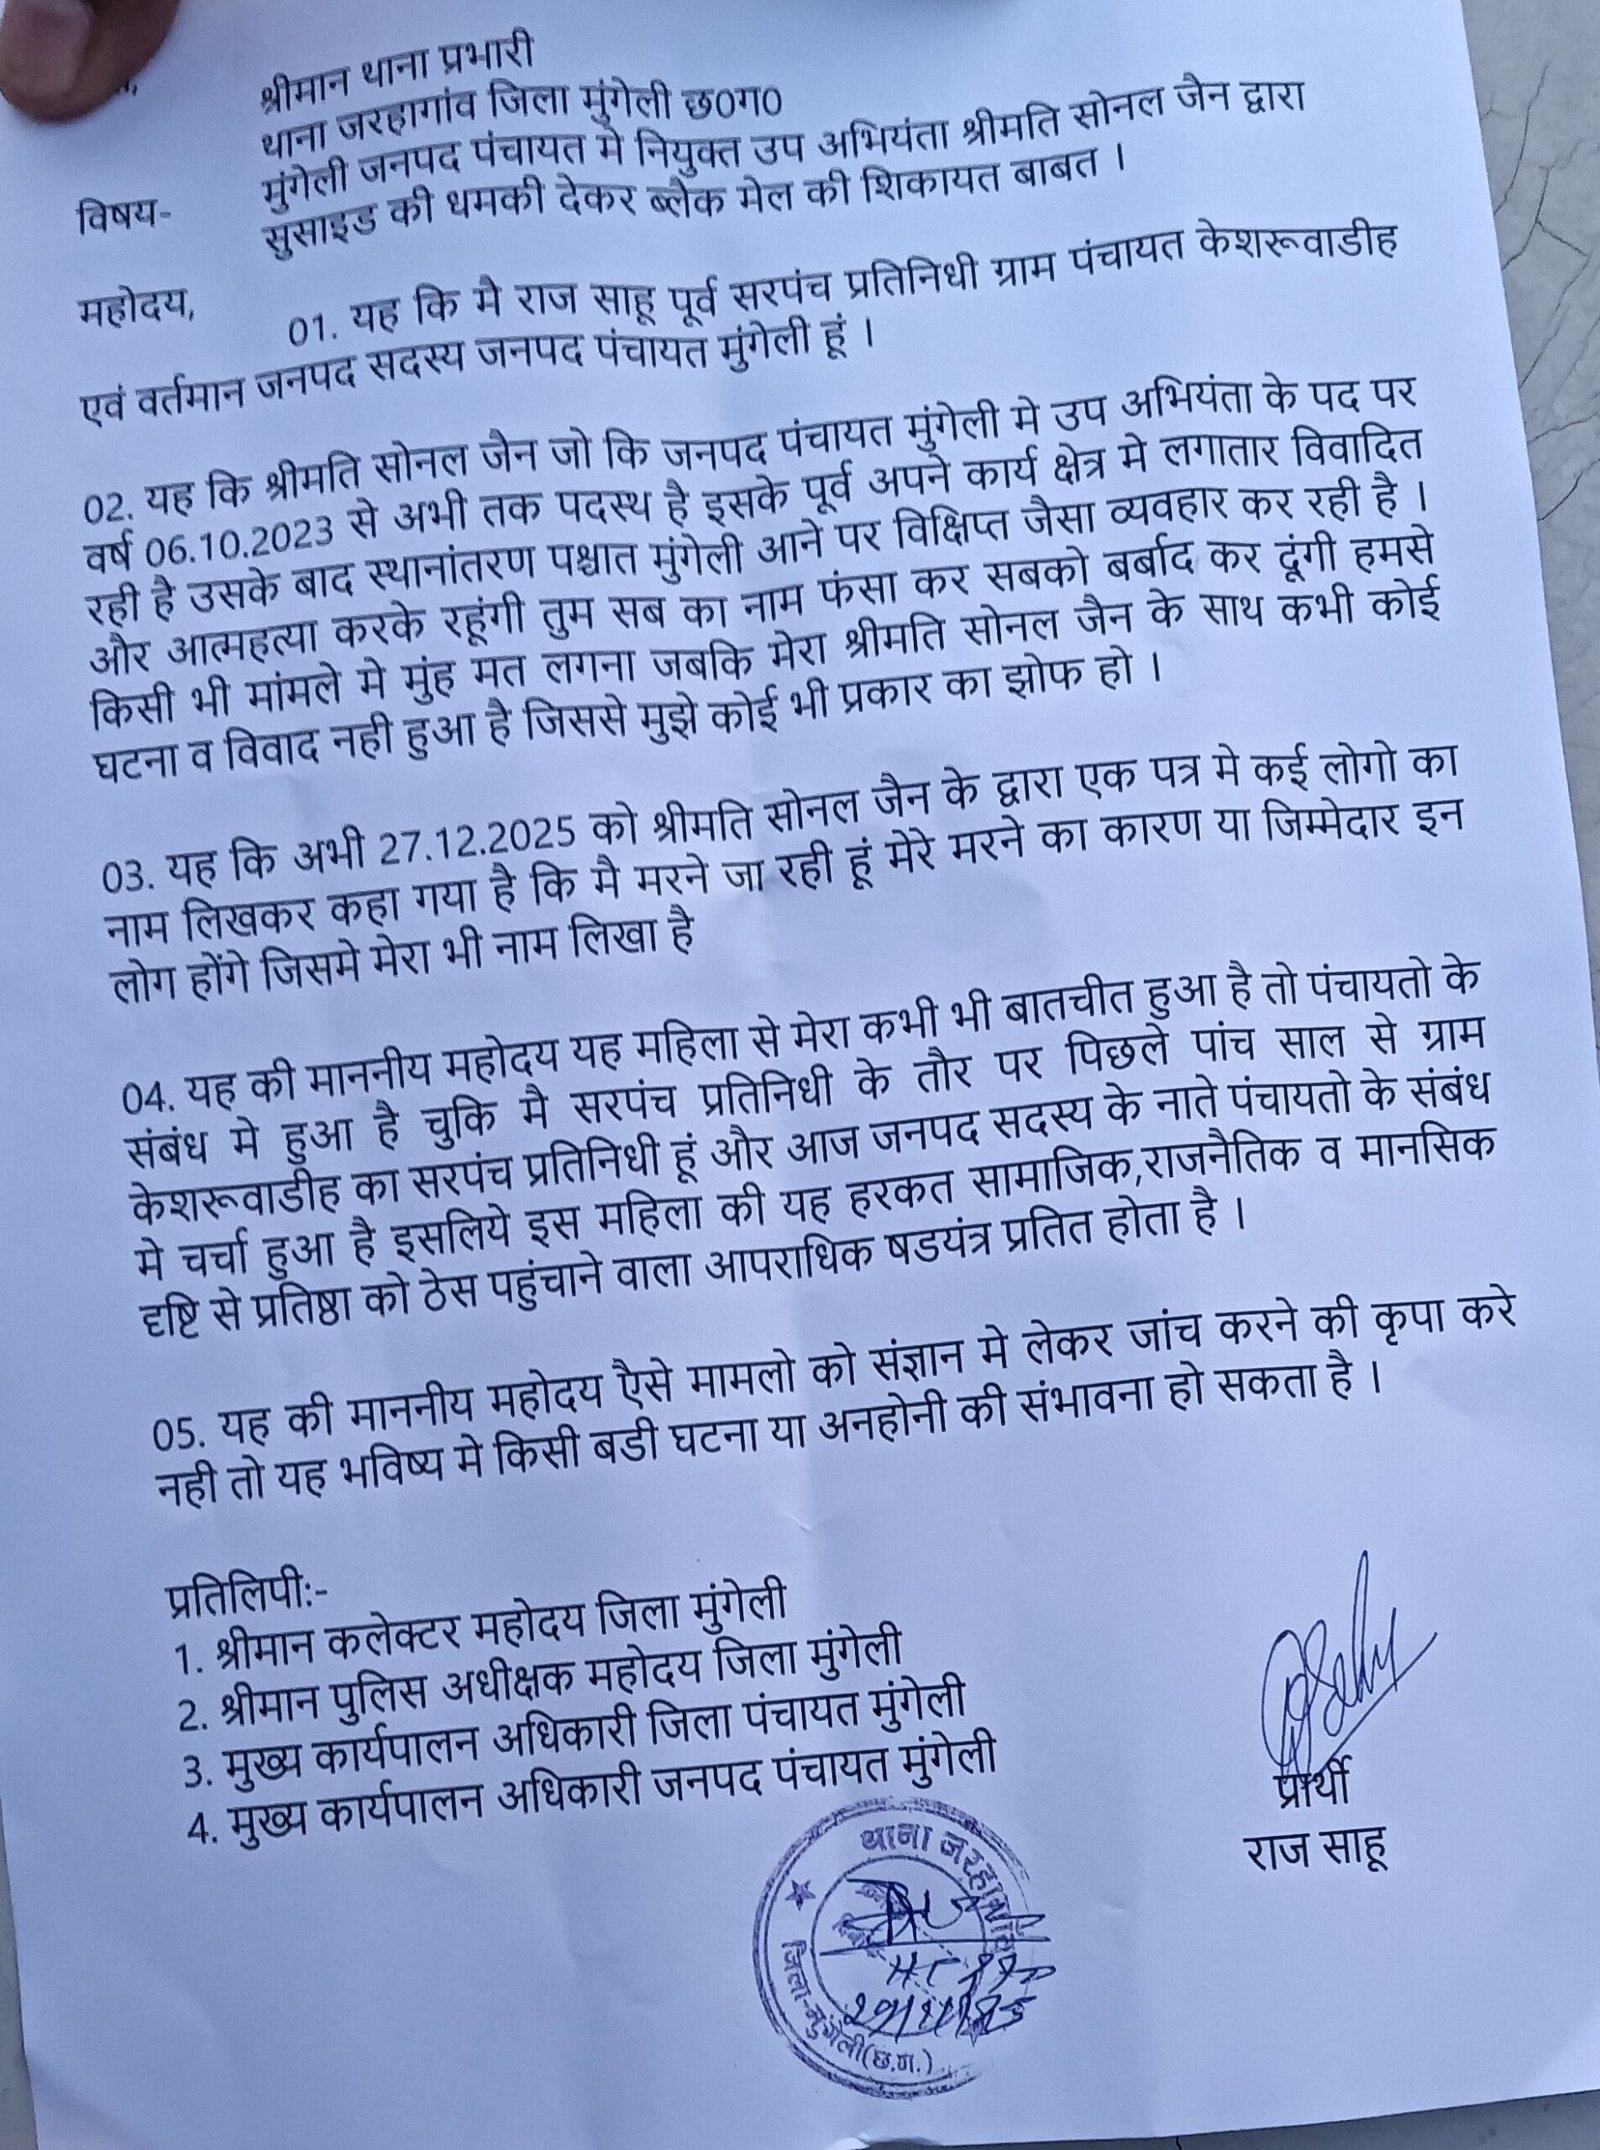 श्रीमान थाना प्रभारी
थाना जरहागांव जिला मुंगेली छ0ग0
विषय- मुंगेली जनपद पंचायत मे नियुक्त उप अभियंता श्रीमति सोनल जैन द्वारा
सुसाइड की धमकी देकर ब्लैक मेल की शिकायत बाबत ।
महोदय,
01. यह कि मै राज साहू पूर्व सरपंच प्रतिनिधी ग्राम पंचायत केशरूवाडीह
एवं वर्तमान जनपद सदस्य जनपद पंचायत मुंगेली हूं ।
02. यह कि श्रीमति सोनल जैन जो कि जनपद पंचायत मुंगेली मे उप अभियंता के पद पर
वर्ष 06.10.2023 से अभी तक पदस्थ है इसके पूर्व अपने कार्य क्षेत्र मे लगातार विवादित
रही है उसके बाद स्थानांतरण पश्चात मुंगेली आने पर विक्षिप्त जैसा व्यवहार कर रही है ।
और आत्महत्या करके रहूंगी तुम सब का नाम फंसा कर सबको बर्बाद कर दूंगी हमसे
किसी भी मांमले मे मुंह मत लगना जबकि मेरा श्रीमति सोनल जैन के साथ कभी कोई
घटना व विवाद नही हुआ है जिससे मुझे कोई भी प्रकार का झोफ हो ।
03. यह कि अभी 27.12.2025 को श्रीमति सोनल जैन के द्वारा एक पत्र मे कई लोगो का
नाम लिखकर कहा गया है कि मै मरने जा रही हूं मेरे मरने का कारण या जिम्मेदार इन
लोग होंगे जिसमे मेरा भी नाम लिखा है
04. यह की माननीय महोदय यह महिला से मेरा कभी भी बातचीत हुआ है तो पंचायतो के
संबंध मे हुआ है चुकि मै सरपंच प्रतिनिधी के तौर पर पिछले पांच साल से ग्राम
केशरूवाडीह का सरपंच प्रतिनिधी हूं और आज जनपद सदस्य के नाते पंचायतो के संबंध
मे चर्चा हुआ है इसलिये इस महिला की यह हरकत सामाजिक,राजनैतिक व मानसिक
दृष्टि से प्रतिष्ठा को ठेस पहुंचाने वाला आपराधिक षडयंत्र प्रतित होता है ।
05. यह की माननीय महोदय ऐसे मामलो को संज्ञान मे लेकर जांच करने की कृपा करे
नही तो यह भविष्य मे किसी बडी घटना या अनहोनी की संभावना हो सकता है ।
प्रतिलिपी:-
1. श्रीमान कलेक्टर महोदय जिला मुंगेली
2. श्रीमान पुलिस अधीक्षक महोदय जिला मुंगेली
3. मुख्य कार्यपालन अधिकारी जिला पंचायत मुंगेली
4. मुख्य कार्यपालन अधिकारी जनपद पंचायत मुंगेली
प्रार्थी
राज साहू
थाना जरहागांव
जिला-मुंगेली(छ.ग.)